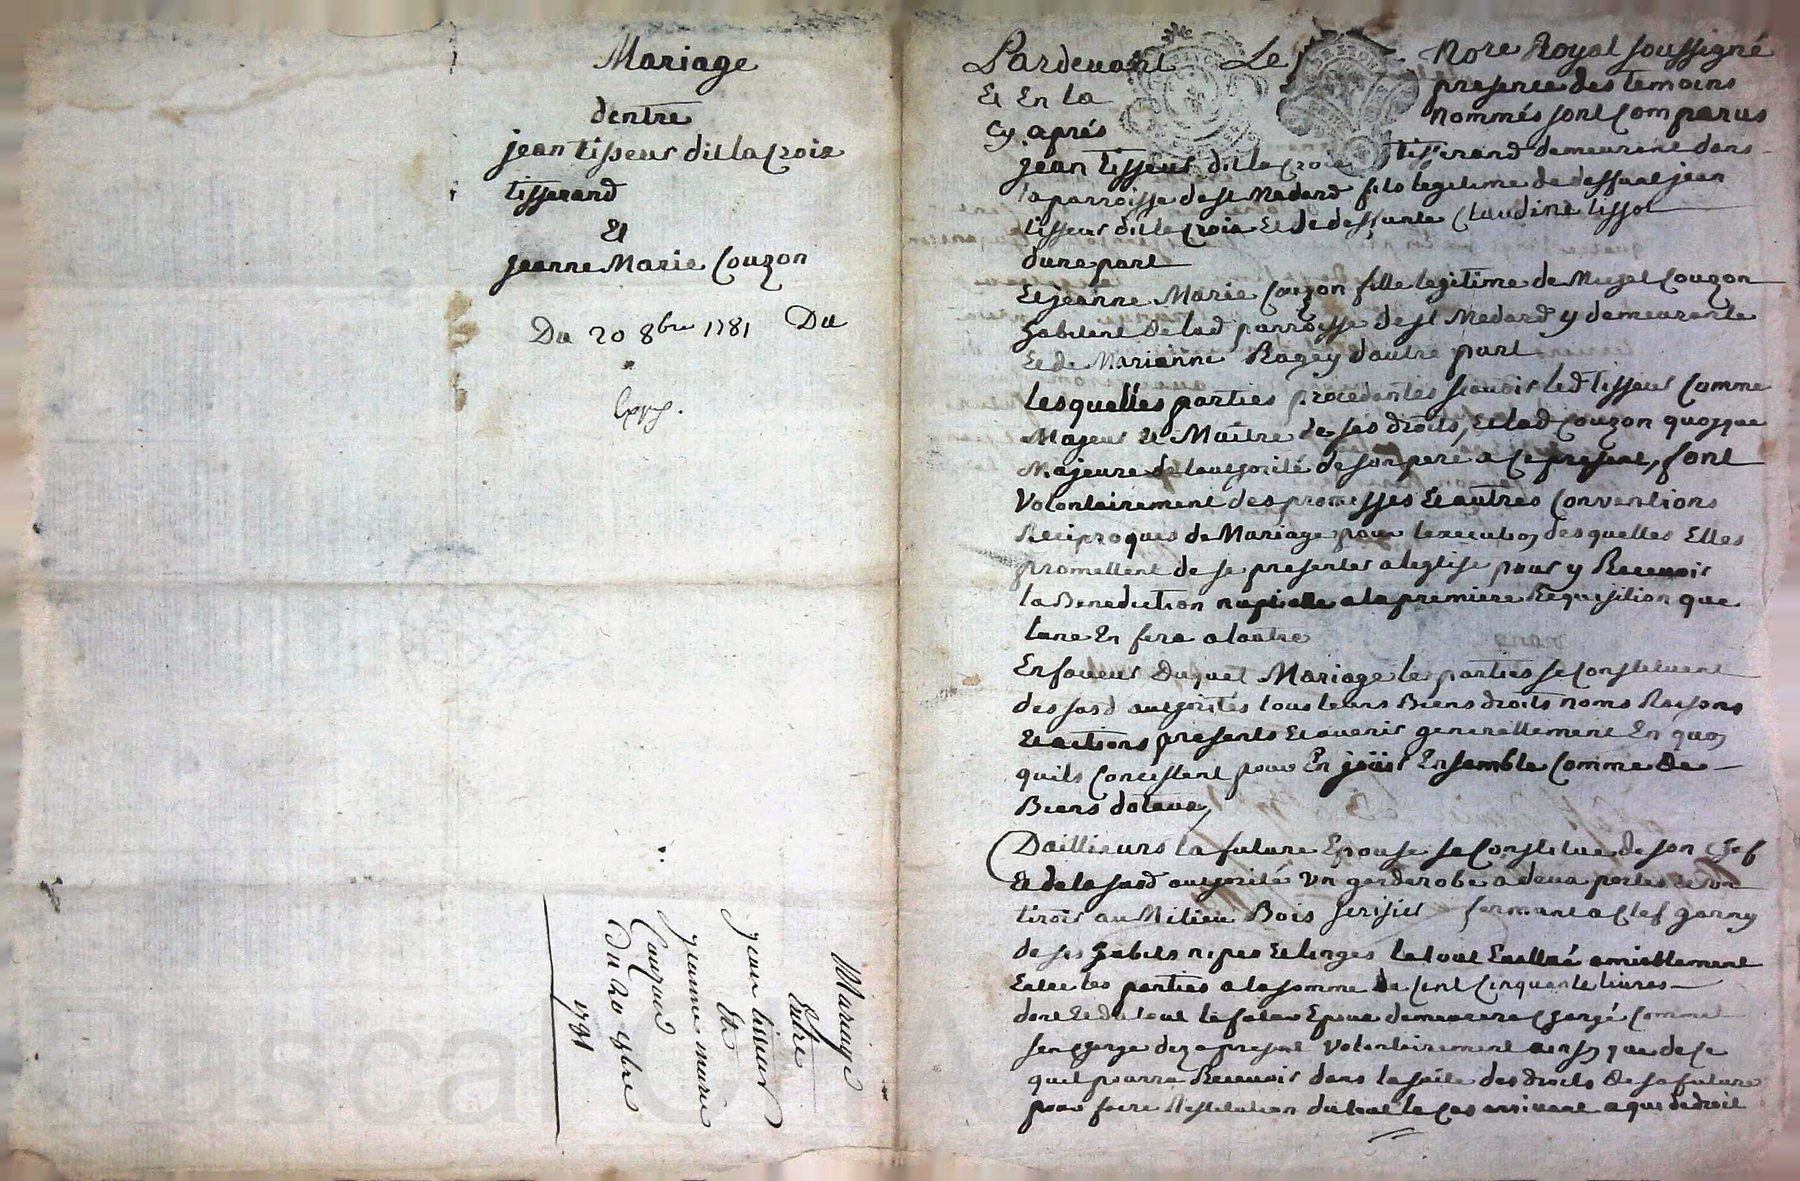 Mariage
dentre
jean tisseur dit la Croix
tisserand
Et
jeanne Marie Couzon
Du 20 8bre 1781 Du
Mariage
Entre
jean tisseur
Et
jeanne marie
Couzon
Du 20 8bre
1781
Pardevant Le Nore Royal soussigné
Et En la presence des temoins
Cy aprés nommés sont Comparus
jean tisseur dit la Croix tisserand demeurent dans
la parroisse de st Medard fils legitime de deffunt jean
tisseur dit la Croix Et de deffunte Claudine tissot
dune part
Et jeanne Marie Couzon fille legitime de Couzon
habitent de lad parroisse de st Medard y demeurante
Et de Marianne Ragey dautre part
Lesquelles parties procedantes scavoir led tisseur Comme
Majeur Et Maitre de ses droits, Et lad Couzon quoyque
Majeure de lauthorité de son pere a Ce present, font
Volontairement des promesses Et autres Conventions
Reciproques de Mariage pour lexecution desquelles Elles
promettent de se presenter a leglise pour y Recevoir
la Benediction nuptialle a la premiere Requisition que
lune En fera a lautre
En faveur Duquel Mariage les parties se Constituent
des susd authorités tous leurs Biens droits noms Raisons
Et actions presents Et avenir generallement En quoy
quils Concistent pour En joüir Ensemble Comme De
Biens dotaux,
Dailleurs la future Epouse se Constitue de son Chef
Et de la susd authorité Un garderobe a deux portes Et un
tiroir au Milieu Bois serisier fermant a Clef garny
de ses habits nipes Et linges le tout amiablement
Entre les parties a la somme de Cent Cinquante livres
dont Et du tout le futur Epoux demeurera Chargé Comme
sen Charge deza present Volontairement ainsy que de Ce
quil pourra Recevoir dans la suite des droits De sa future
pour faire Restitution du tout le Cas arrivant a qui de droit
Pascal